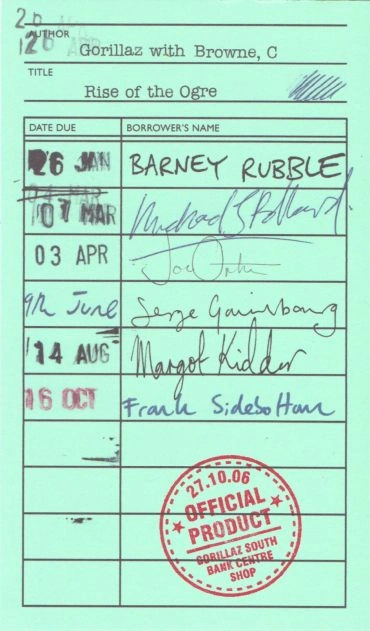 20
26
AUTHOR
Gorillaz with Browne, C
TITLE
Rise of the Ogre
DATE DUE BORROWER'S NAME
26 JAN BARNEY RUBBLE
04 MAR
07 MAR Michael J Pollard.
03 APR Joe Orton
9th June Serge Gainsbourg
14 AUG Margot Kidder
16 OCT Frank Sidebottom
27.10.06
OFFICIAL
PRODUCT
GORILLAZ SOUTH
BANK CENTRE
SHOP